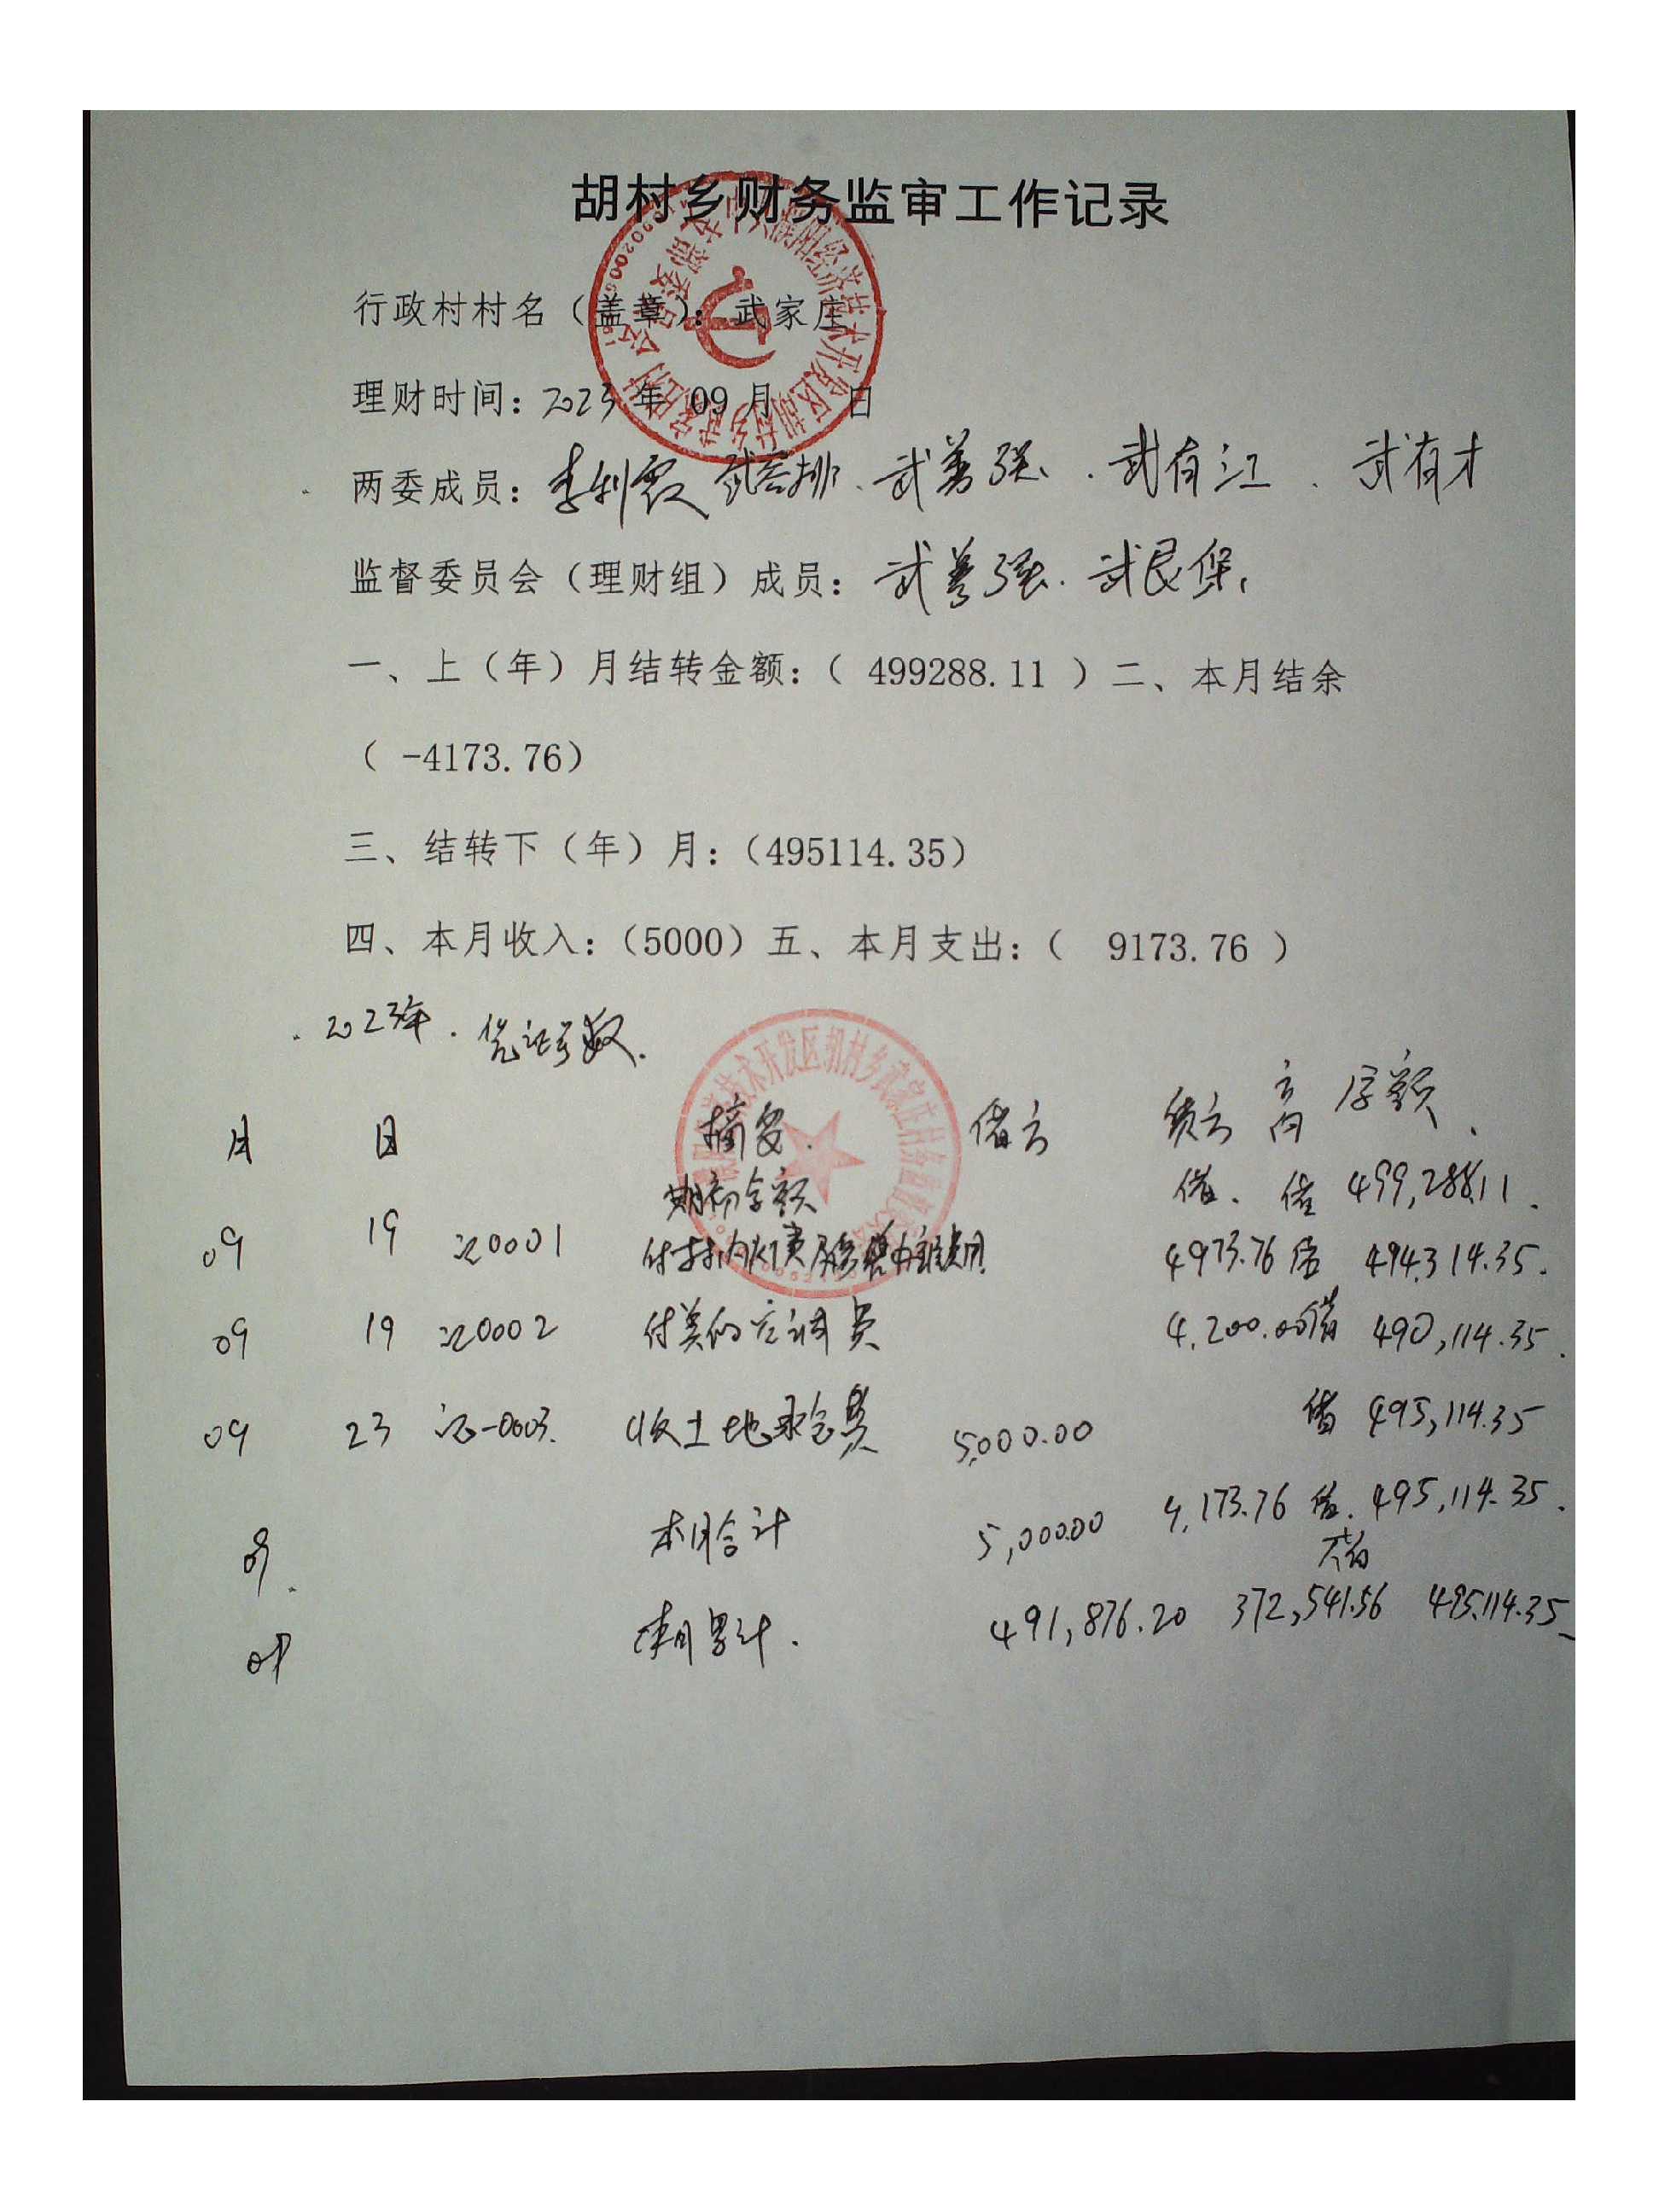 胡村乡财务监审工作记录
行政村村名（盖章）：武家庄
理财时间：2023年 09月 日
两委成员：李利霞 武善强、武有江、武有才
监督委员会（理财组）成员：武善强、武艮保、
一、上（年）月结转金额：（ 499288.11 ）二、本月结余
（ -4173.76）
三、结转下（年）月：（495114.35）
四、本月收入：（5000）五、本月支出：（ 9173.76 ）
2023年. 凭证号数.
月 日 摘要. 借方 贷方 方向 余额
期初余额 借 499,288.11.
09 19 记0001 4973.76 借 494,314.35.
09 19 记0002 付美的空调费 4,200.00借 490,114.35.
09 23 记-0003. 收土地承包费 5,000.00 借 495,114.35
09. 本月合计 5,000.00 9,173.76 借. 495,114.35.
09 本月累计. 491,876.20 372,541.56 借 495,114.35